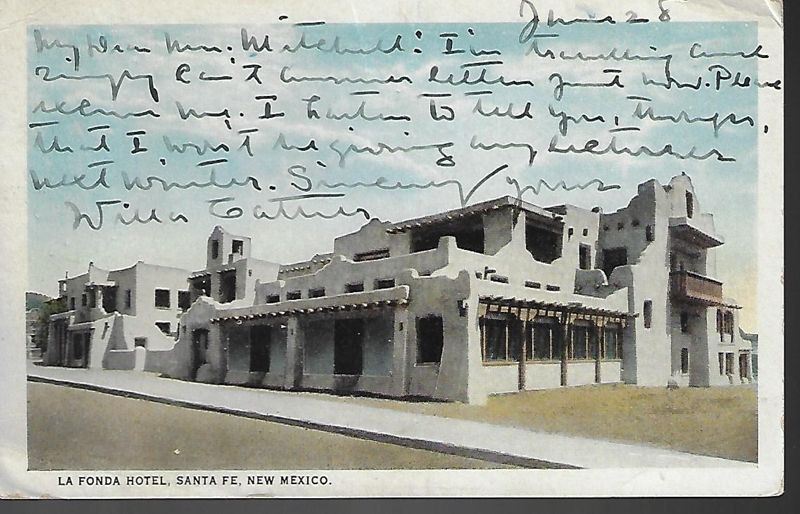 June 28
My Dear Mrs. Mitchell: I'm travelling and
simply can't answer letters just now. Please
excuse me. I hasten to tell you, though,
that I won't be giving any lectures
next winter. Sincerely yours
Willa Cather
LA FONDA HOTEL, SANTA FE, NEW MEXICO.